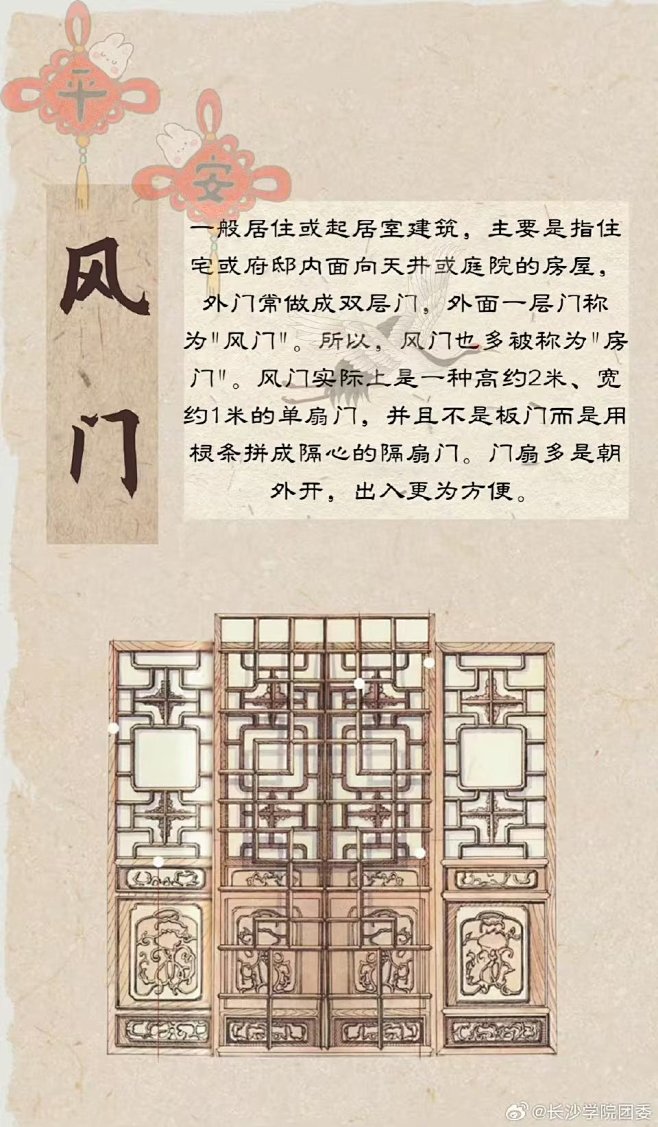 平
安
风
门
一般居住或起居室建筑，主要是指住
宅或府邸内面向天井或庭院的房屋，
外门常做成双层门，外面一层门称
为"风门"。所以，风门也多被称为"房
门"。风门实际上是一种高约2米、宽
约1米的单扇门，并且不是板门而是用
根条拼成隔心的隔扇门。门扇多是朝
外开，出入更为方便。
@长沙学院团委